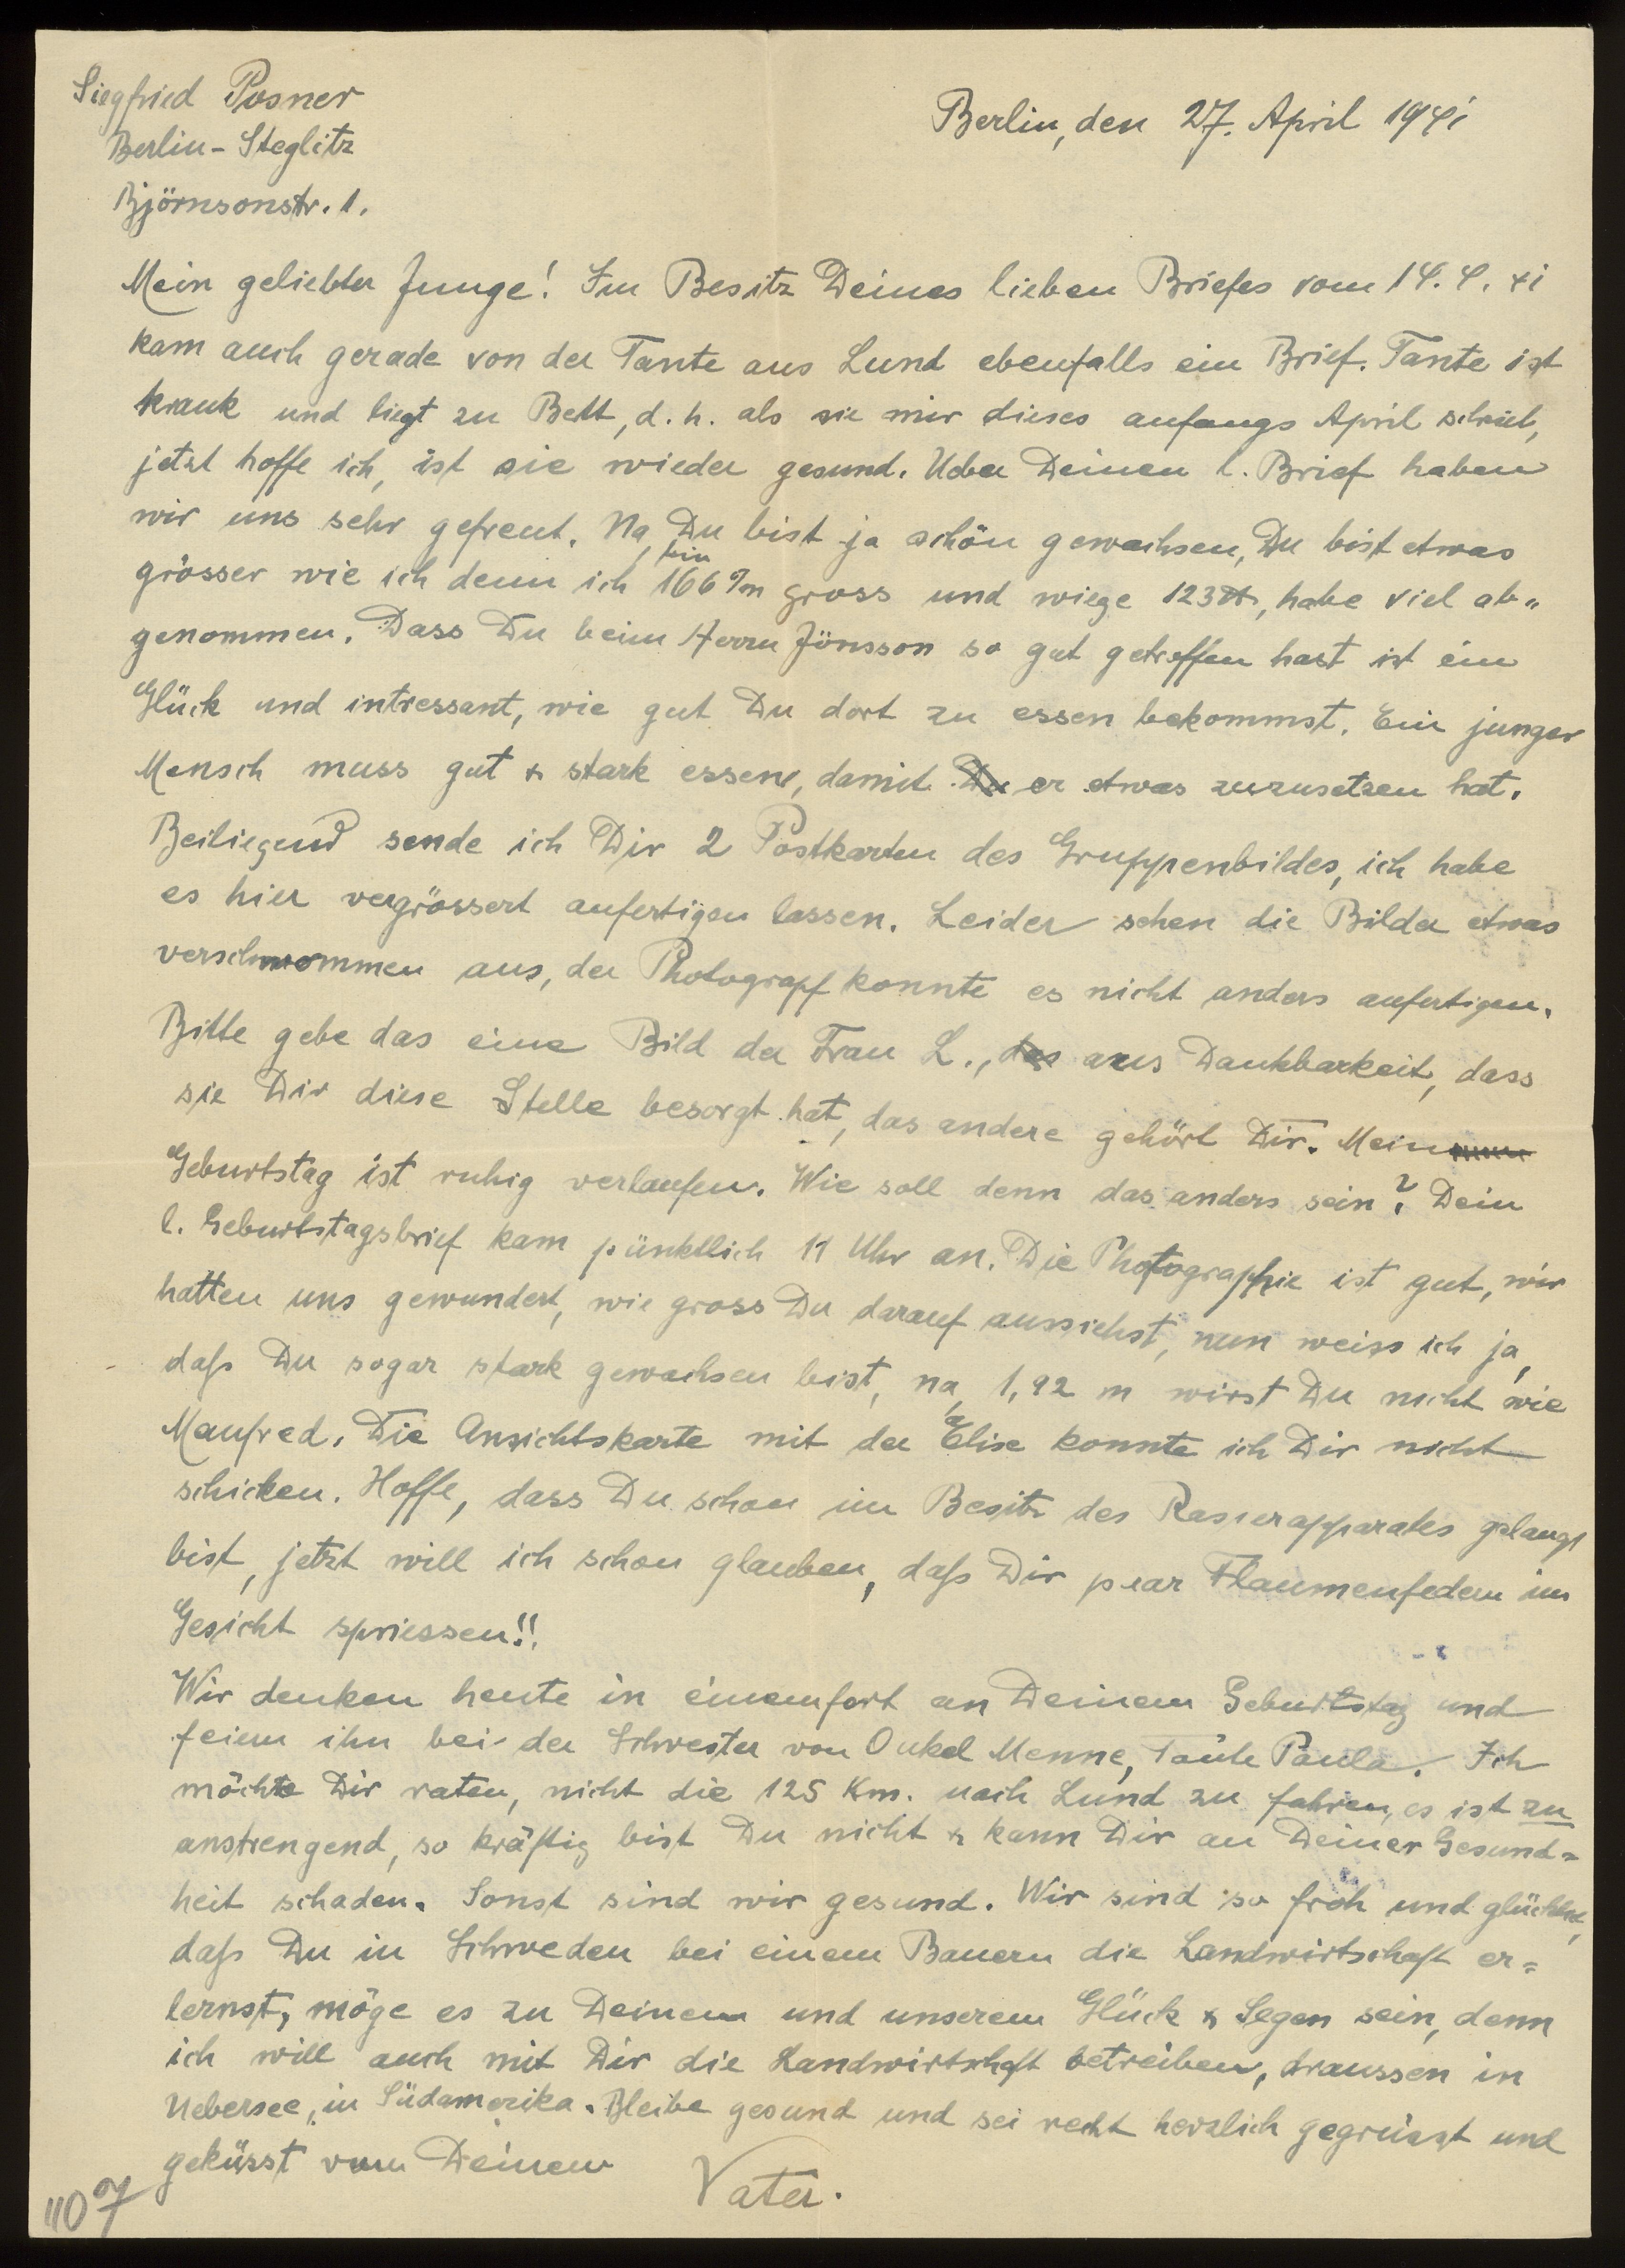 Siegfried Posner
Berlin, den 27. April 1941
Berlin-Steglitz
Björnsonstr. 1.
Mein geliebter Junge! Im Besitz Deines lieben Briefes vom 14.4.41
kam auch gerade von der Tante aus Lund ebenfalls ein Brief. Tante ist
krank und liegt zu Bett, d. h. als sie mir dieses anfangs April schrieb,
jetzt hoffe ich, ist sie wieder gesund. Ueber Deinen l. Brief haben
wir uns sehr gefreut. Na, Du bist ja schön gewachsen, Du bist etwas
grösser wie ich denn ich bin 166 c/m gross und wiege 123 ℔, habe viel ab„
genommen. Dass Du beim Herrn Jönsson so gut getroffen hast ist ein
Glück und intressant, wie gut Du dort zu essen bekommst. Ein junger
Mensch muss gut & stark essen, damit Du er etwas zuzusetzen hat.
Beiliegend sende ich Dir 2 Postkarten des Gruppenbildes, ich habe
es hier vergrössert anfertigen lassen. Leider sehen die Bilder etwas
verschwommen aus, der Photograpf konnte es nicht anders anfertigen.
Bitte gebe das eine Bild der Frau L., das aus Dankbarkeit, dass
sie Dir diese Stelle besorgt hat, das andere gehört Dir. Mein
Geburtstag ist ruhig verlaufen. Wie soll denn das anders sein? Dein
l. Geburtstagsbrief kam pünktlich 11 Uhr an. Die Photographie ist gut, wir
hatten uns gewundert, wie gross Du darauf aussiehst, nun weiss ich ja,
daß Du sogar stark gewachsen bist, na, 1,92 m wirst Du nicht wie
Manfred. Die Ansichtskarte mit der Elise konnte ich Dir nicht
schicken. Hoffe, dass Du schon im Besitz des Rasierapparates gelangt
bist, jetzt will ich schon glauben, daß Dir paar Flaumenfedern im
Gesicht spriessen!!
Wir denken heute in einemfort an Deinem Geburtstag und
feiern ihn bei der Schwester von Onkel Menne, Tante Paula. Ich
möchte Dir raten, nicht die 125 Km. nach Lund zu fahren, es ist zu
anstrengend, so kräftig bist Du nicht & kann Dir an Deiner Gesund=
heit schaden. Sonst sind wir gesund. Wir sind so froh und glücklich,
daß Du in Schweden bei einem Bauern die Landwirtschaft er=
lernst, möge es zu Deinem und unserem Glück & Segen sein, denn
ich will auch mit Dir die Landwirtschaft betreiben, draussen in
Uebersee, in Südamerika. Bleibe gesund und sei recht herzlich gegrüsst und
geküsst von Deinem
Vater.